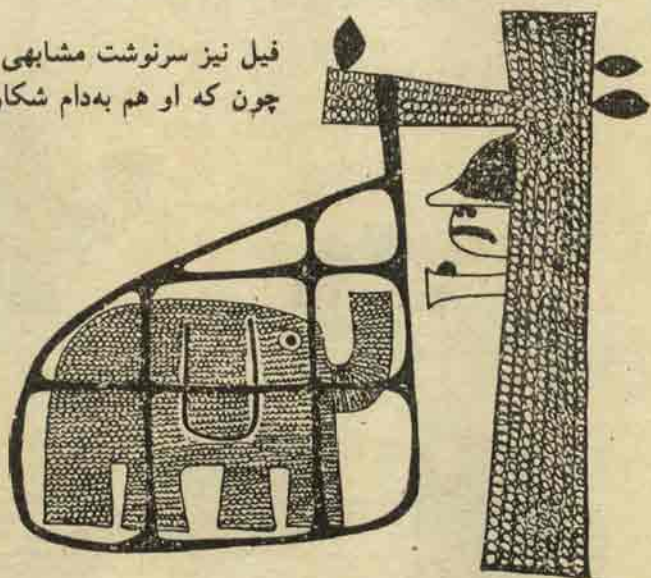 فیل نیز سرنوشت مشابهی
چون که او هم به‌دام